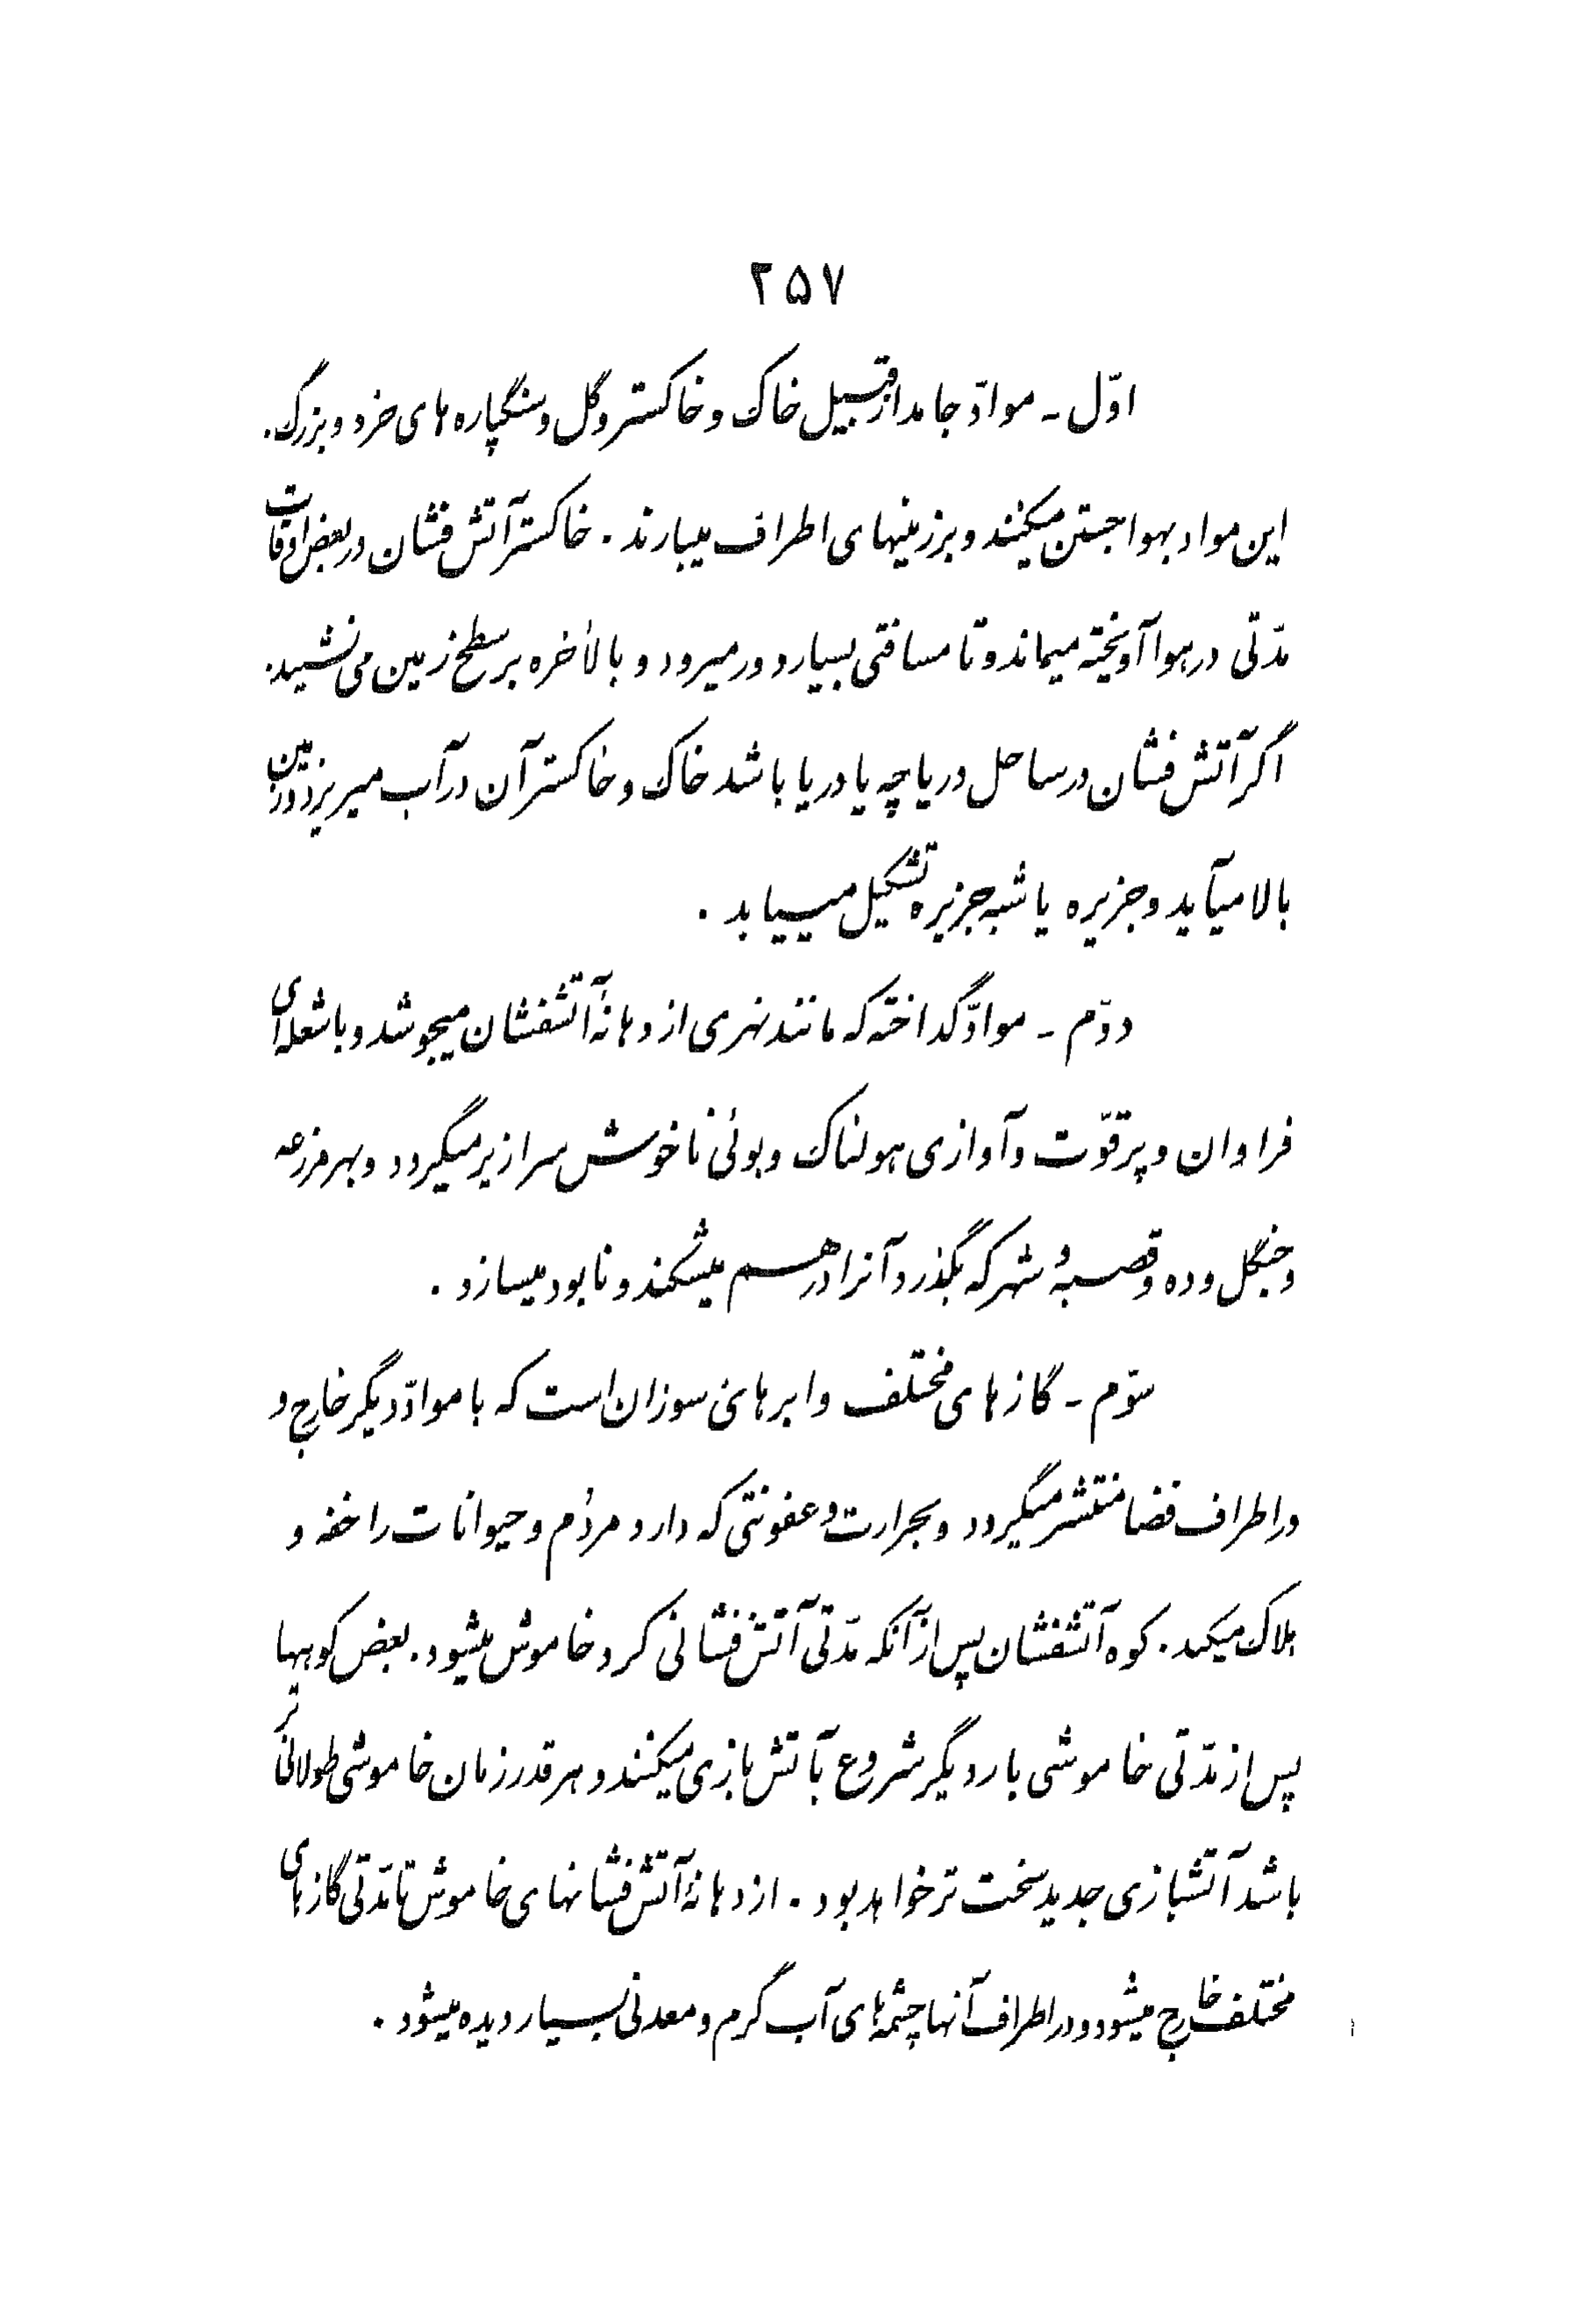 ۲۵۷
اوّل ـ موادّ جامد از قبیل خاک و خاکستر و گل و سنگپاره های خرد و بزرگ.
این مواد بهوا جستن میکنند و بر زمینهای اطراف میبارند . خاکستر آتش فشان در بعض اوقات
مدّتی در هوا آویخته میماند و تا مسافتی بسیار دور میرود و بالاخره بر سطح زمین می نشیند.
اگر آتش فشان در ساحل دریاچه یا دریا باشد خاک و خاکستر آن در آب میریزد و زمین
بالا میآید و جزیره یا شبه جزیره تشکیل مییابد .
دوّم ـ موادّ گداخته که مانند نهری از دهانهٔ آتشفشان میجوشد و با شعله ای
فراوان و پر قوّت و آوازی هولناک و بوئی ناخوش سرازیر میگردد و بهر مزرعه
و جنگل و ده و قصبه و شهر که بگذرد آنرا در هم میشکند و نابود میسازد .
سوّم ـ گازهای مختلف و ابرهائی سوزان است که با موادّ دیگر خارج و
در اطراف فضا منتشر میگردد و بحرارت و عفونتی که دارد مردُم و حیوانات را خفه و
هلاک میکند . کوه آتشفشان پس از آنکه مدّتی آتش فشانی کرد خاموش میشود . بعض کوهها
پس از مدّتی خاموشی بار دیگر شروع بآتش بازی میکنند و هر قدر زمان خاموشی طولانی تر
باشد آتشبازی جدید سخت تر خواهد بود . از دهانهٔ آتش فشانهای خاموش تا مدّتی گازهای
مختلف خارج میشود و در اطراف آنها چشمه های آب گرم و معدنی بسیار دیده میشود .